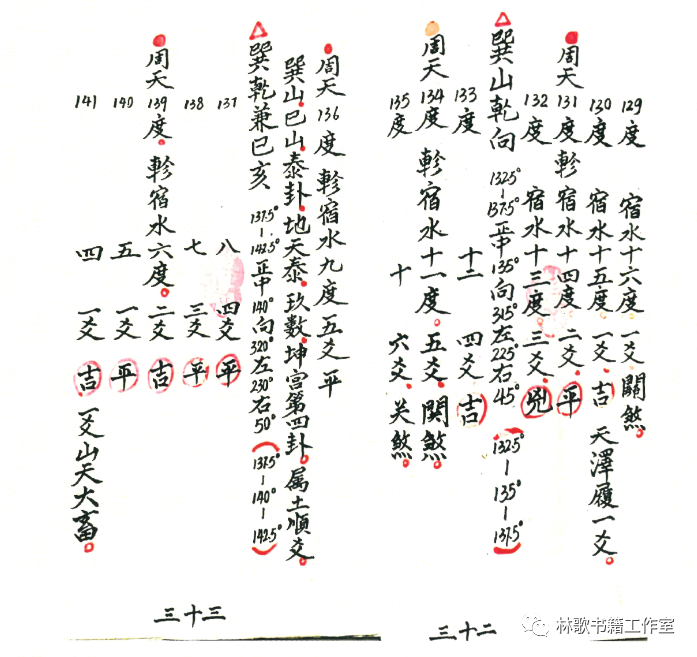 129度 宿水十六度。一爻 關煞。
130度 宿水十五度。一爻。吉 天澤履一爻。
周天131度 軫宿水十四度 二爻。平
132度 宿水十三度 三爻。兇
巽山乾向 132.5°-137.5° 正中135°向315°左225°右45° (132.5°-135°-137.5°)
133度 十二 四爻 吉
周天134度 軫宿水十一度。五爻 関煞。
135度 十 六爻。关煞。
三十二
周天136度 軫宿水九度 五爻 平
巽山.巳山泰卦.地天泰.玖數.坤宫第四卦。属土順爻。
巽乾兼巳亥 137.5°-142.5° 正中140°向320°左230°右50° (137.5°-140°-142.5°)
137 八 四爻 平
138 七 三爻 平
周天139度。軫宿水六度。二爻 吉
140 五 一爻 平
141 四 一爻 吉 爻山天大畜。
三十三
林歌书籍工作室